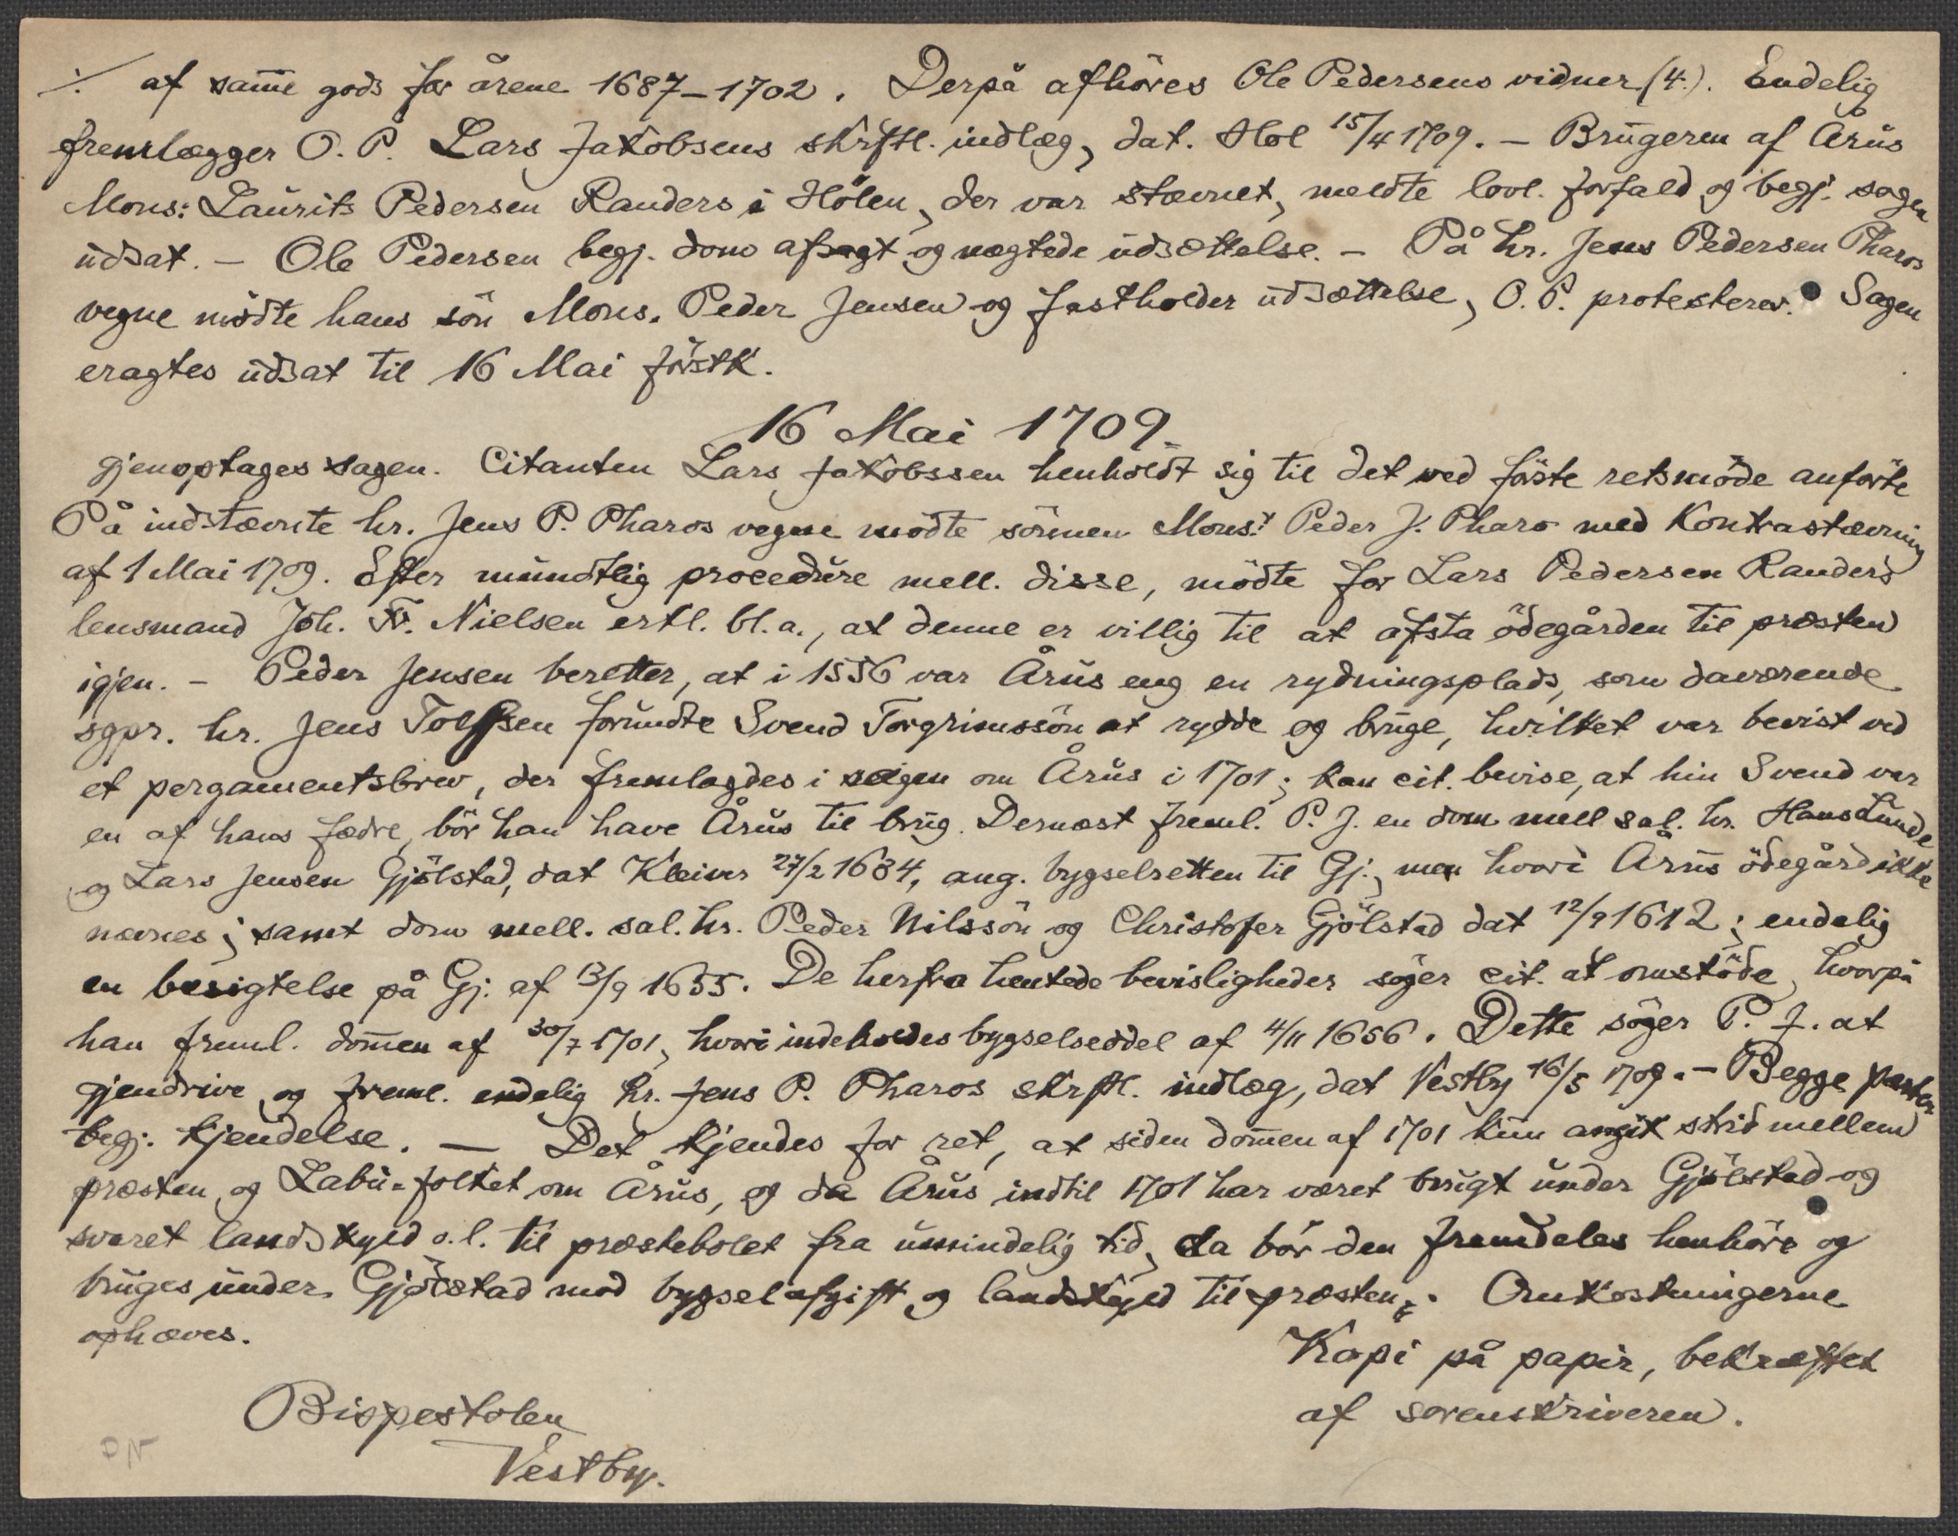 ./. af samme gods for årene 1687–1702. Derpå afhöres Ole Pedersens vidner (4.). Endelig
fremlægger O. P. Lars Jakobsens skrftl. indlæg, dat. Hol 15/4 1709. – Brugeren af Årus
Mons: Laurits Pedersen Randers i Hölen, der var stævnet, meldte lovl. forfald og begj. sagen
udsat. – Ole Pedersen begj. dom afsagt og nægtede udsættelse. – På hr. Jens Pedersen Pharos
vegne mödte hans sön Mons. Peder Jensen og fastholder udsættelse, O. P. protesterer. Sagen
eragtes udsat til 16 Mai förstk.
16 Mai 1709.
gjenoptages sagen. Citanten Lars Jakobssen henholdt sig til det ved förste retsmöde anförte
På indstævnte hr. Jens P. Pharos vegne mödte sönnen Monsr. Peder J. Pharo med Kontrastævning
af 1 Mai 1709. Efter mundtlig procedure mell. disse, mödte for Lars Pedersen Randers
lensmand Joh. Fr. Nielsen erkl. bl. a., at denne er villig til at afsta ödegården til præsten
igjen. – Peder Jensen beretter, at i 1556 var Årus eng en rydningsplads, som daværende
sgpr. hr. Jens Tolfsen forundte Svend Torgrimssön at rydde og bruge, hvilket var bevist ved
et pergamentsbrev, der fremlagdes i sagen om Årus i 1701; kan cit. bevise, at hin Svend var
en af hans fædre, bör han have Årus til brug. Dernæst freml. P. J. en dom mell sal. hr. Hans Lunde
og Lars Jensen Gjölstad, dat Kleiver 27/2 1684, ang. bygselretten til Gj., men hvori Årus ödegård ikke
nævnes; samt dom mell. sal. hr. Peder Nilssön og Christofer Gjölstad dat 12/9 1612; endelig
en besigtelse på Gj. af 13/9 1655. De herfra hentede bevisligheder söger cit. at omstöde, hvorpå
han freml. dommen af 30/7 1701, hvori indeholdes bygselseddel af 4/11 1656. Dette söger P. J. at
gjendrive og freml. endelig hr. Jens P. Pharos skrftl. indlæg, dat Vestby 16/5 1709. – Begge parter
begj. kjendelse. — Det kjendes for ret, at siden dommen af 1701 kun angik strid mellem
præsten og Labu-folket om Årus, og da Årus indtil 1701 har været brugt under Gjölstad og
svaret landskyld o. l. til præstebolet fra umindelig tid, da bör den fremdeles henhöre og
bruges under Gjölstad mod bygselafgift og landskyld til præsten. Omkostningerne
ophæves.
Kopi på papir, bekræftet
af sorenskriveren.
Bispestolen
Vestby.
DN